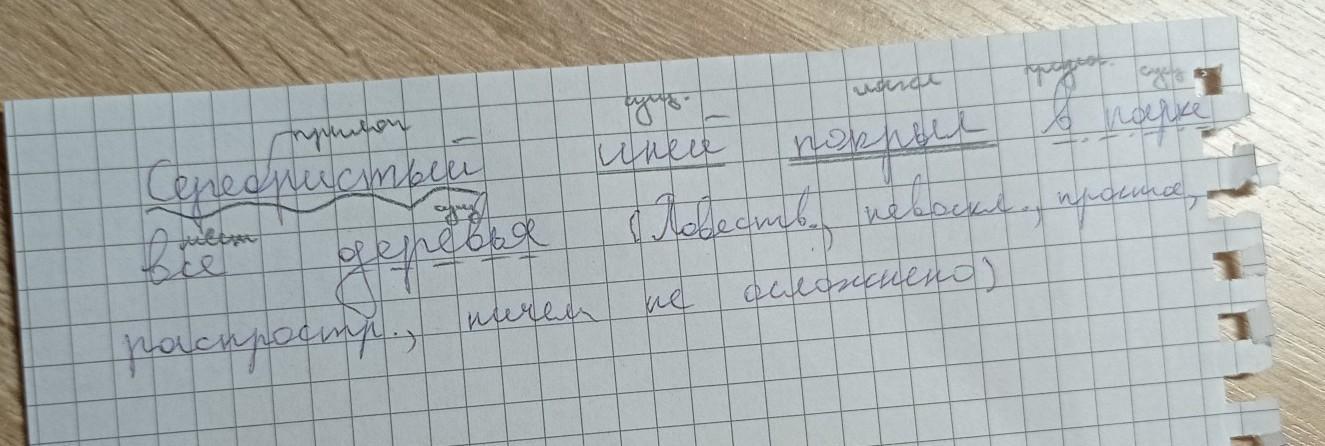 прилаг. сущ. глагол предлог. сущ.
Серебристый иней покрыл в парке
мест сущ
все деревья (Повеств., невоскл., простое,
распростр., ничем не осложнено)